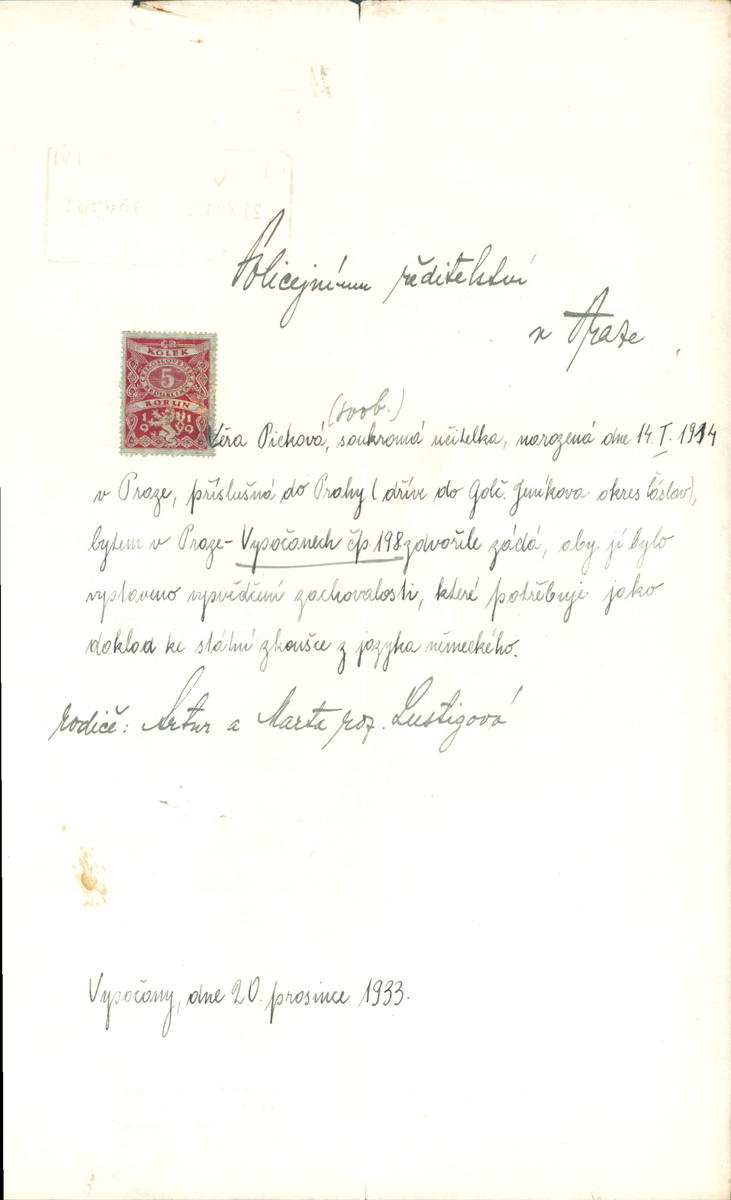 Policejnímu ředitelství
v Praze
KOLEK
ČESKOSLOVENSKÁ
REPUBLIKA
5
KORUN
1919
(svob.)
Věra Picková, soukromá učitelka, narozená dne 14. I. 1914
v Praze, příslušná do Prahy (dříve do Golč. Jeníkova okres Čáslav),
bytem v Praze-Vysočanech čp. 198 zdvořile žádá, aby jí bylo
vystaveno vysvědčení zachovalosti, které potřebuje jako
doklad ke státní zkoušce z jazyka německého.
rodiče: Artur a Marta roz. Lustigová
Vysočany, dne 20. prosince 1933.